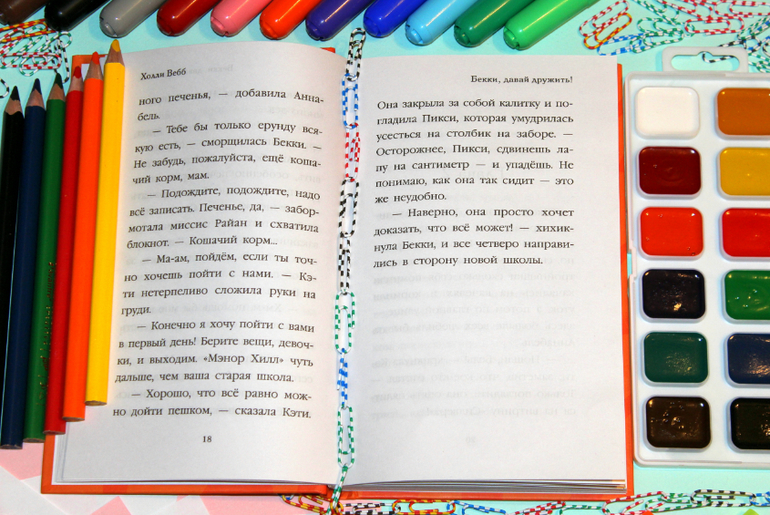 Холли Вебб
ного печенья, — добавила Анна-
бель.
— Тебе бы только ерунду вся-
кую есть, — сморщилась Бекки. —
Не забудь, пожалуйста, ещё коша-
чий корм, мам.
— Подождите, подождите, надо
всё записать. Печенье, да, — забор-
мотала миссис Райан и схватила
блокнот. — Кошачий корм...
— Ма-ам, пойдём, если ты точ-
но хочешь пойти с нами. — Кэ-
ти нетерпеливо сложила руки на
груди.
— Конечно я хочу пойти с вами
в первый день! Берите вещи, девоч-
ки, и выходим. «Мэнор Хилл» чуть
дальше, чем ваша старая школа.
— Хорошо, что всё равно мож-
но дойти пешком, — сказала Кэти.
18
Бекки, давай дружить!
Она закрыла за собой калитку и по-
гладила Пикси, которая умудрилась
усесться на столбик на заборе. —
Осторожнее, Пикси, сдвинешь ла-
пу на сантиметр — и упадёшь. Не
понимаю, как она так сидит — это
же неудобно.
— Наверно, она просто хочет
доказать, что всё может! — хихик-
нула Бекки, и все четверо направи-
лись в сторону новой школы.